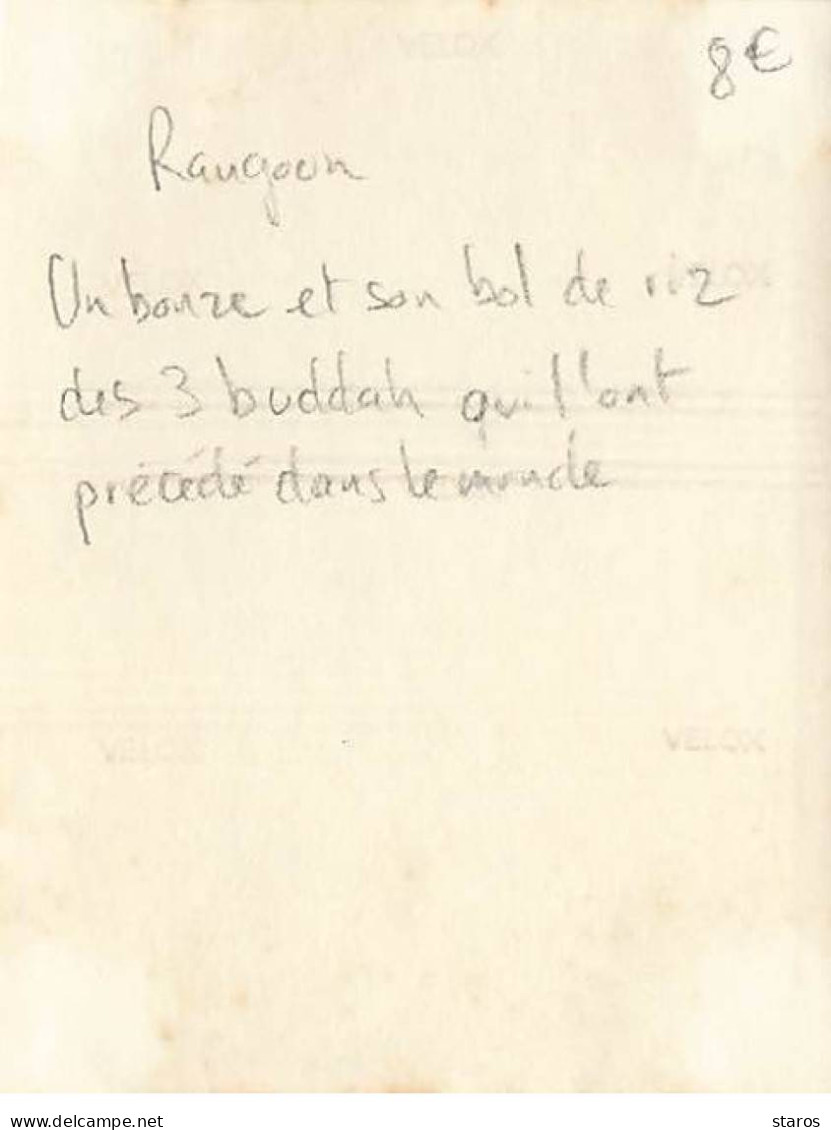 VELOX
8€
Rangoon
Un bonze et son bol de riz
des 3 buddah qui l'ont
précédé dans le monde
VELOX
VELOX
delcampe.net
staros